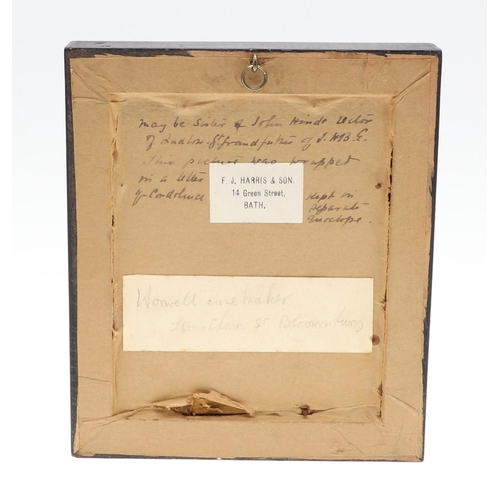 may be Sister of John Hinde Rector
of Ludlow. Gt. grandfather of J. H. B. G.
This picture was wrapped
in a letter
of Condolence kept in
Separate
Envelope.
F. J. HARRIS & SON.
14 Green Street,
BATH.
maker
St Bloomsbury